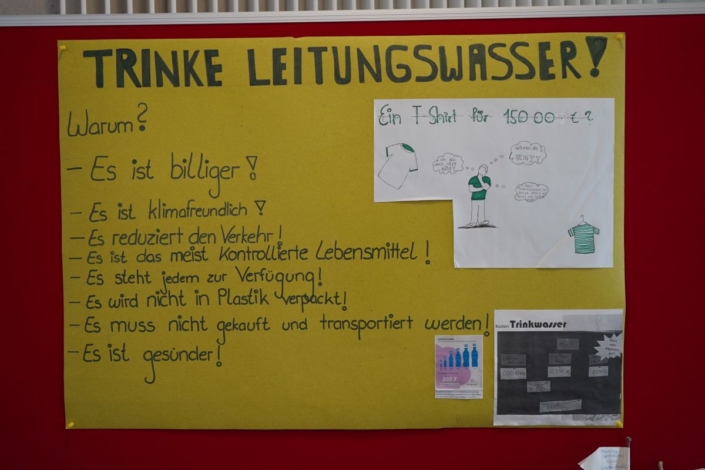 TRINKE LEITUNGSWASSER!
Warum?
- Es ist billiger!
- Es ist klimafreundlich!
- Es reduziert den Verkehr!
- Es ist das meist Kontrollierte Lebensmittel!
- Es steht jedem zur Verfügung!
- Es wird nicht in Plastik verpackt!
- Es muss nicht gekauft und transportiert werden!
- Es ist gesünder!
Ein T-Shirt für 15000 €?
Trinkwasser